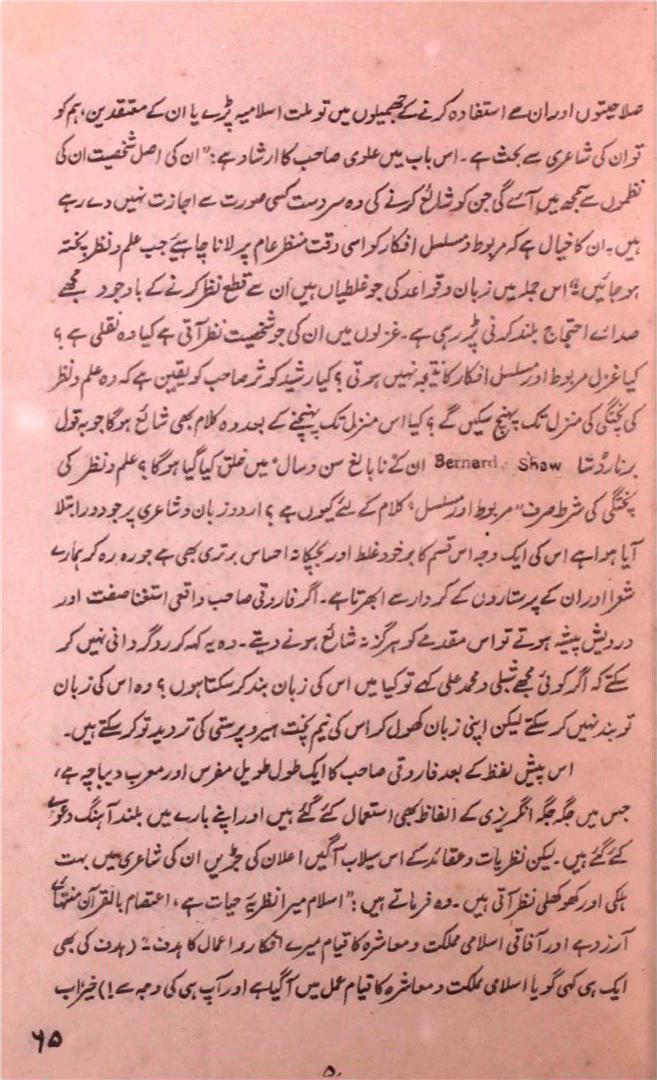 صلاحیتوں اور ان سے استفادہ کرنے کے جھمیلوں میں تو ملت اسلامیہ پڑے یا ان کے معتقدین، ہم کو
تو ان کی شاعری سے بحث ہے۔ اس باب میں علوی صاحب کا ارشاد ہے: "ان کی اصل شخصیت ان کی
نظموں سے سمجھ میں آئے گی جن کو شائع کرنے کی وہ سردست کسی صورت سے اجازت نہیں دے رہے
ہیں۔ ان کا خیال ہے کہ مربوط و مسلسل افکار کو اسی وقت منظر عام پر لانا چاہیئے جب علم و نظر پختہ
ہو جائیں"۔ اس جملہ میں زبان و قواعد کی جو غلطیاں ہیں اُن سے قطع نظر کرنے کے باوجود مجھے
صدائے احتجاج بلند کرنی پڑ رہی ہے۔ غزلوں میں ان کی جو شخصیت نظر آتی ہے کیا وہ نقلی ہے؟
کیا غزل مربوط اور مسلسل افکار کا نتیجہ نہیں ہوتی؟ کیا رشید کوثر صاحب کو یقین ہے کہ وہ علم و نظر
کی پختگی کی منزل تک پہنچ سکیں گے؟ کیا اس منزل تک پہنچنے کے بعد وہ کلام بھی شائع ہوگا جو بہ قول
برنارڈ شا Bernard Shaw ان کے نابالغ سن و سال میں خلق کیا گیا ہوگا؟ علم و نظر کی
پختگی کی شرط صرف "مربوط اور مسلسل" کلام کے لئے کیوں ہے؟ اردو زبان و شاعری پر جو دور ابتلا
آیا ہوا ہے اس کی ایک وجہ اس قسم کا برخود غلط اور بچکانہ احساس برتری بھی ہے جو رہ رہ کر ہمارے
شعرا اور ان کے پرستاروں کے کردار سے ابھرتا ہے۔ اگر فاروقی صاحب واقعی استغنا صفت اور
درویش پیشہ ہوتے تو اس مقدمے کو ہرگز نہ شائع ہونے دیتے۔ وہ یہ کہہ کر روگردانی نہیں کر
سکتے کہ اگر کوئی مجھے شبلی و محمد علی کہے تو کیا میں اس کی زبان بند کر سکتا ہوں؟ وہ اس کی زبان
تو بند نہیں کر سکتے لیکن اپنی زبان کھول کر اس کی نیم پخت ہیرو پرستی کی تردید تو کر سکتے ہیں۔
اس پیش لفظ کے بعد فاروقی صاحب کا ایک طول طویل مفرس اور معرب دیباچہ ہے،
جس میں جگہ جگہ انگریزی کے الفاظ بھی استعمال کئے گئے ہیں اور اپنے بارے میں بلند آہنگ دعوے
کئے گئے ہیں۔ لیکن نظریات و عقائد کے اس سیلاب آگیں اعلان کی جڑیں ان کی شاعری میں بہت
ہلکی اور کھوکھلی نظر آتی ہیں۔ وہ فرماتے ہیں: "اسلام میرا نظریۂ حیات ہے، اعتصام بالقرآن منتہائے
آرزو ہے اور آفاقی اسلامی مملکت و معاشرہ کا قیام میرے افکار و اعمال کا ہدف۔" (ہدف کی بھی
ایک ہی کہی گویا اسلامی مملکت و معاشرہ کا قیام عمل میں آ گیا ہے اور آپ ہی کی وجہ سے!) خیر اب
۶۵